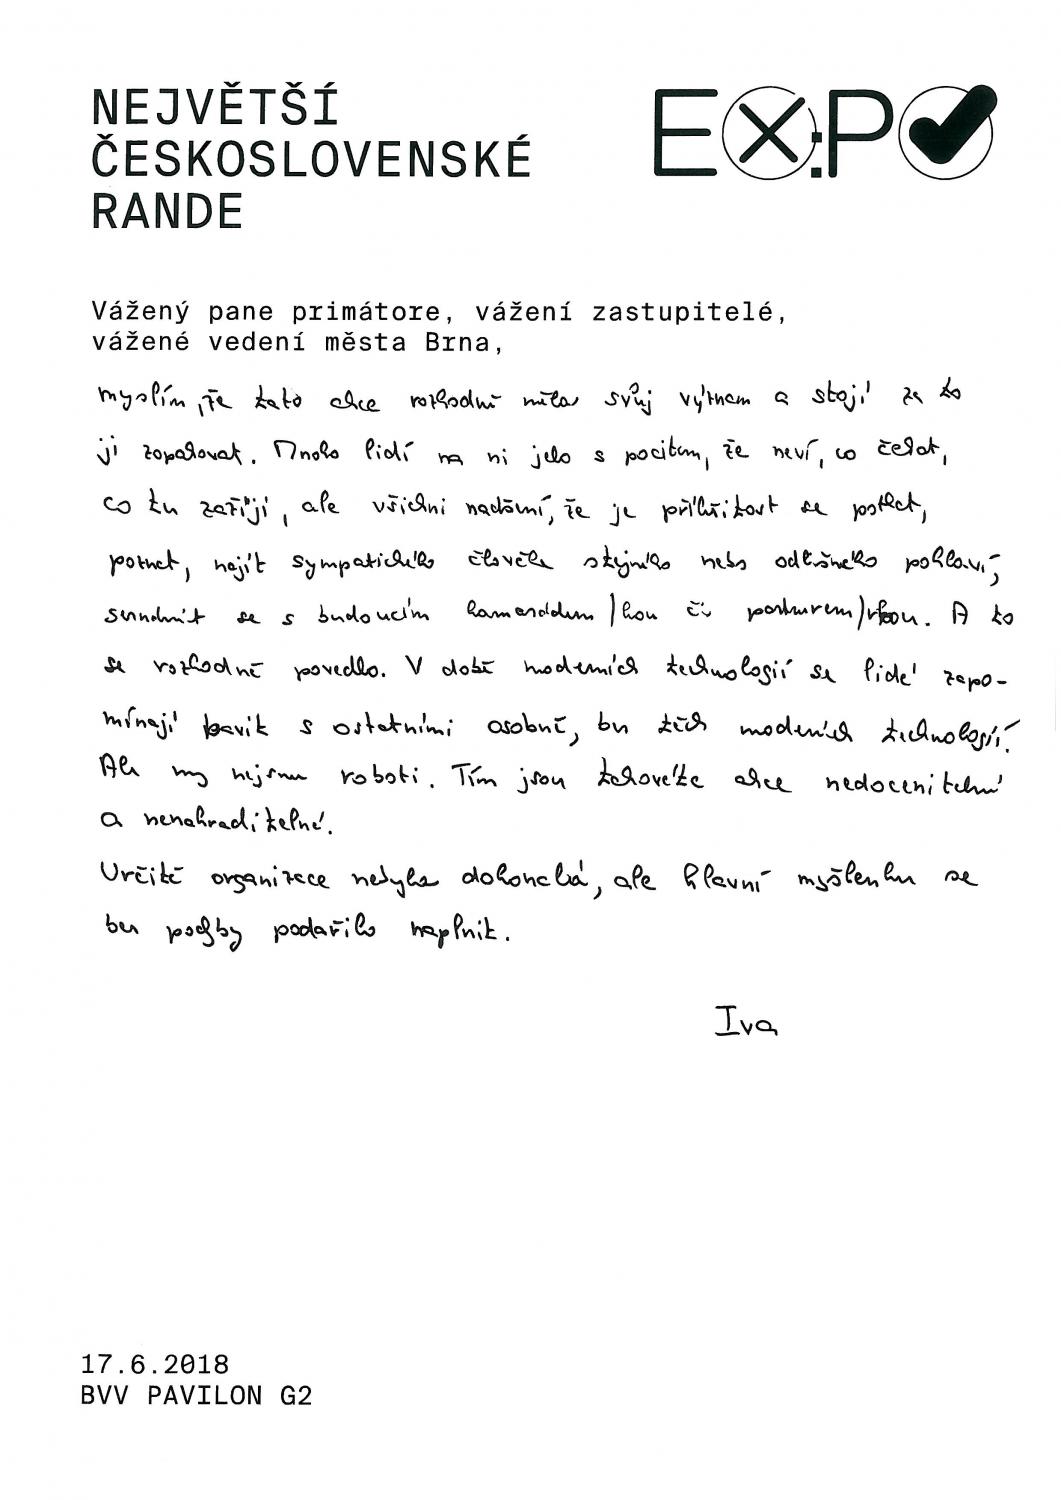 NEJVĚTŠÍ
ČESKOSLOVENSKÉ
RANDE
EX:PO
Vážený pane primátore, vážení zastupitelé,
vážené vedení města Brna,
myslím, že tato akce rozhodně měla svůj význam a stojí za to
ji zopakovat. Mnoho lidí na ni jelo s pocitem, že neví, co čekat,
co tu zažijí, ale všichni nadšení, že je příležitost se potkat,
poznat, najít sympatického člověka stejného nebo odlišného pohlaví,
seznámit se s budoucím kamarádem/kou či partnerem/rkou. A to
se rozhodně povedlo. V době moderních technologií se lidé zapo-
mínají bavit s ostatními osobně, bez těch moderních technologií.
Ale my nejsme roboti. Tím jsou takovéto akce nedocenitelné
a nenahraditelné.
Určitě organizace nebyla dokonalá, ale hlavní myšlenku se
bez pochyby podařilo naplnit.
Iva
17.6.2018
BVV PAVILON G2